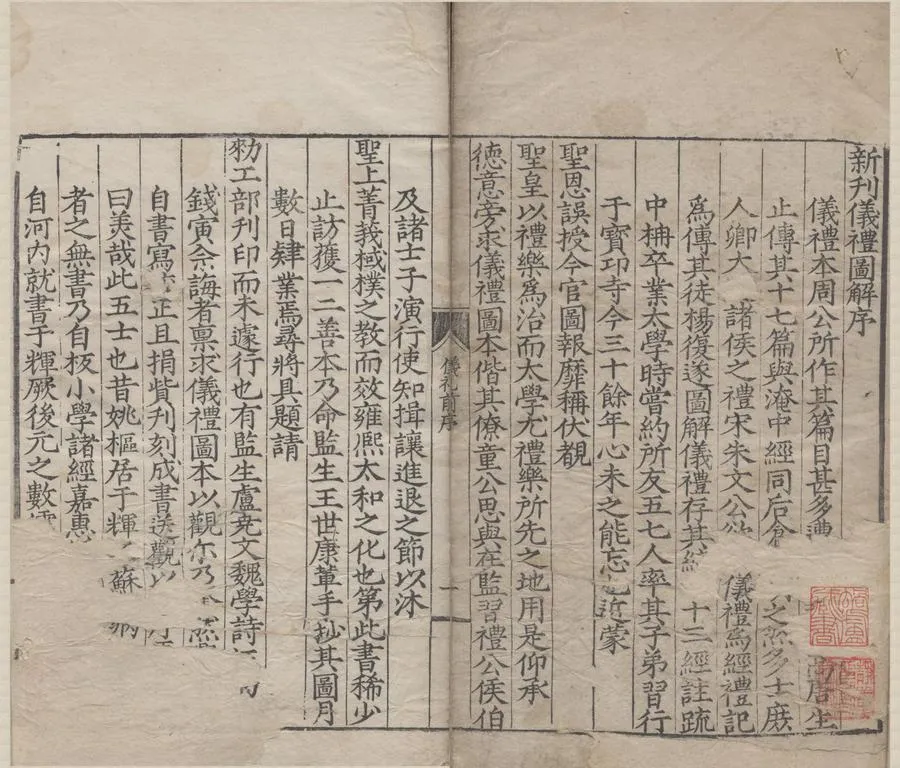 新刊儀禮圖解序
儀禮本周公所作其篇目甚多遭 高唐生
止傳其十七篇與淹中經同后倉 多士庶
人卿大 諸侯之禮宋朱文公 儀禮爲經禮記
爲傳其徒楊復遂圖解儀禮存其 十三經註疏
中柟卒業太學時嘗約所友五七人率其子弟習行
于寳卭寺今三十餘年心未之能忘 近蒙
聖恩誤授今官圖報靡稱伏覩
聖皇以禮樂爲治而太學尤禮樂所先之地用是仰承
德意旁求儀禮圖本偕其僚童公思與在監習禮公侯伯
及諸士子演行使知揖讓進退之節以沐
聖上菁莪棫樸之教而效雍熈太和之化也第此書稀少
止訪獲一二善本乃命監生王世康軰手抄其圖月
數日肄業焉尋將具題請
勑工部刋印而未遽行也有監生盧堯文魏學詩
錢寅余誨者禀求儀禮圖本以觀尔乃
自書寫 正且捐貲刋刻成書送觀
曰美哉此五士也昔姚樞居于輝 蘇
者之無書乃自板小學諸經嘉惠
自河內就書于輝厥後元之數
儀礼啚序
一